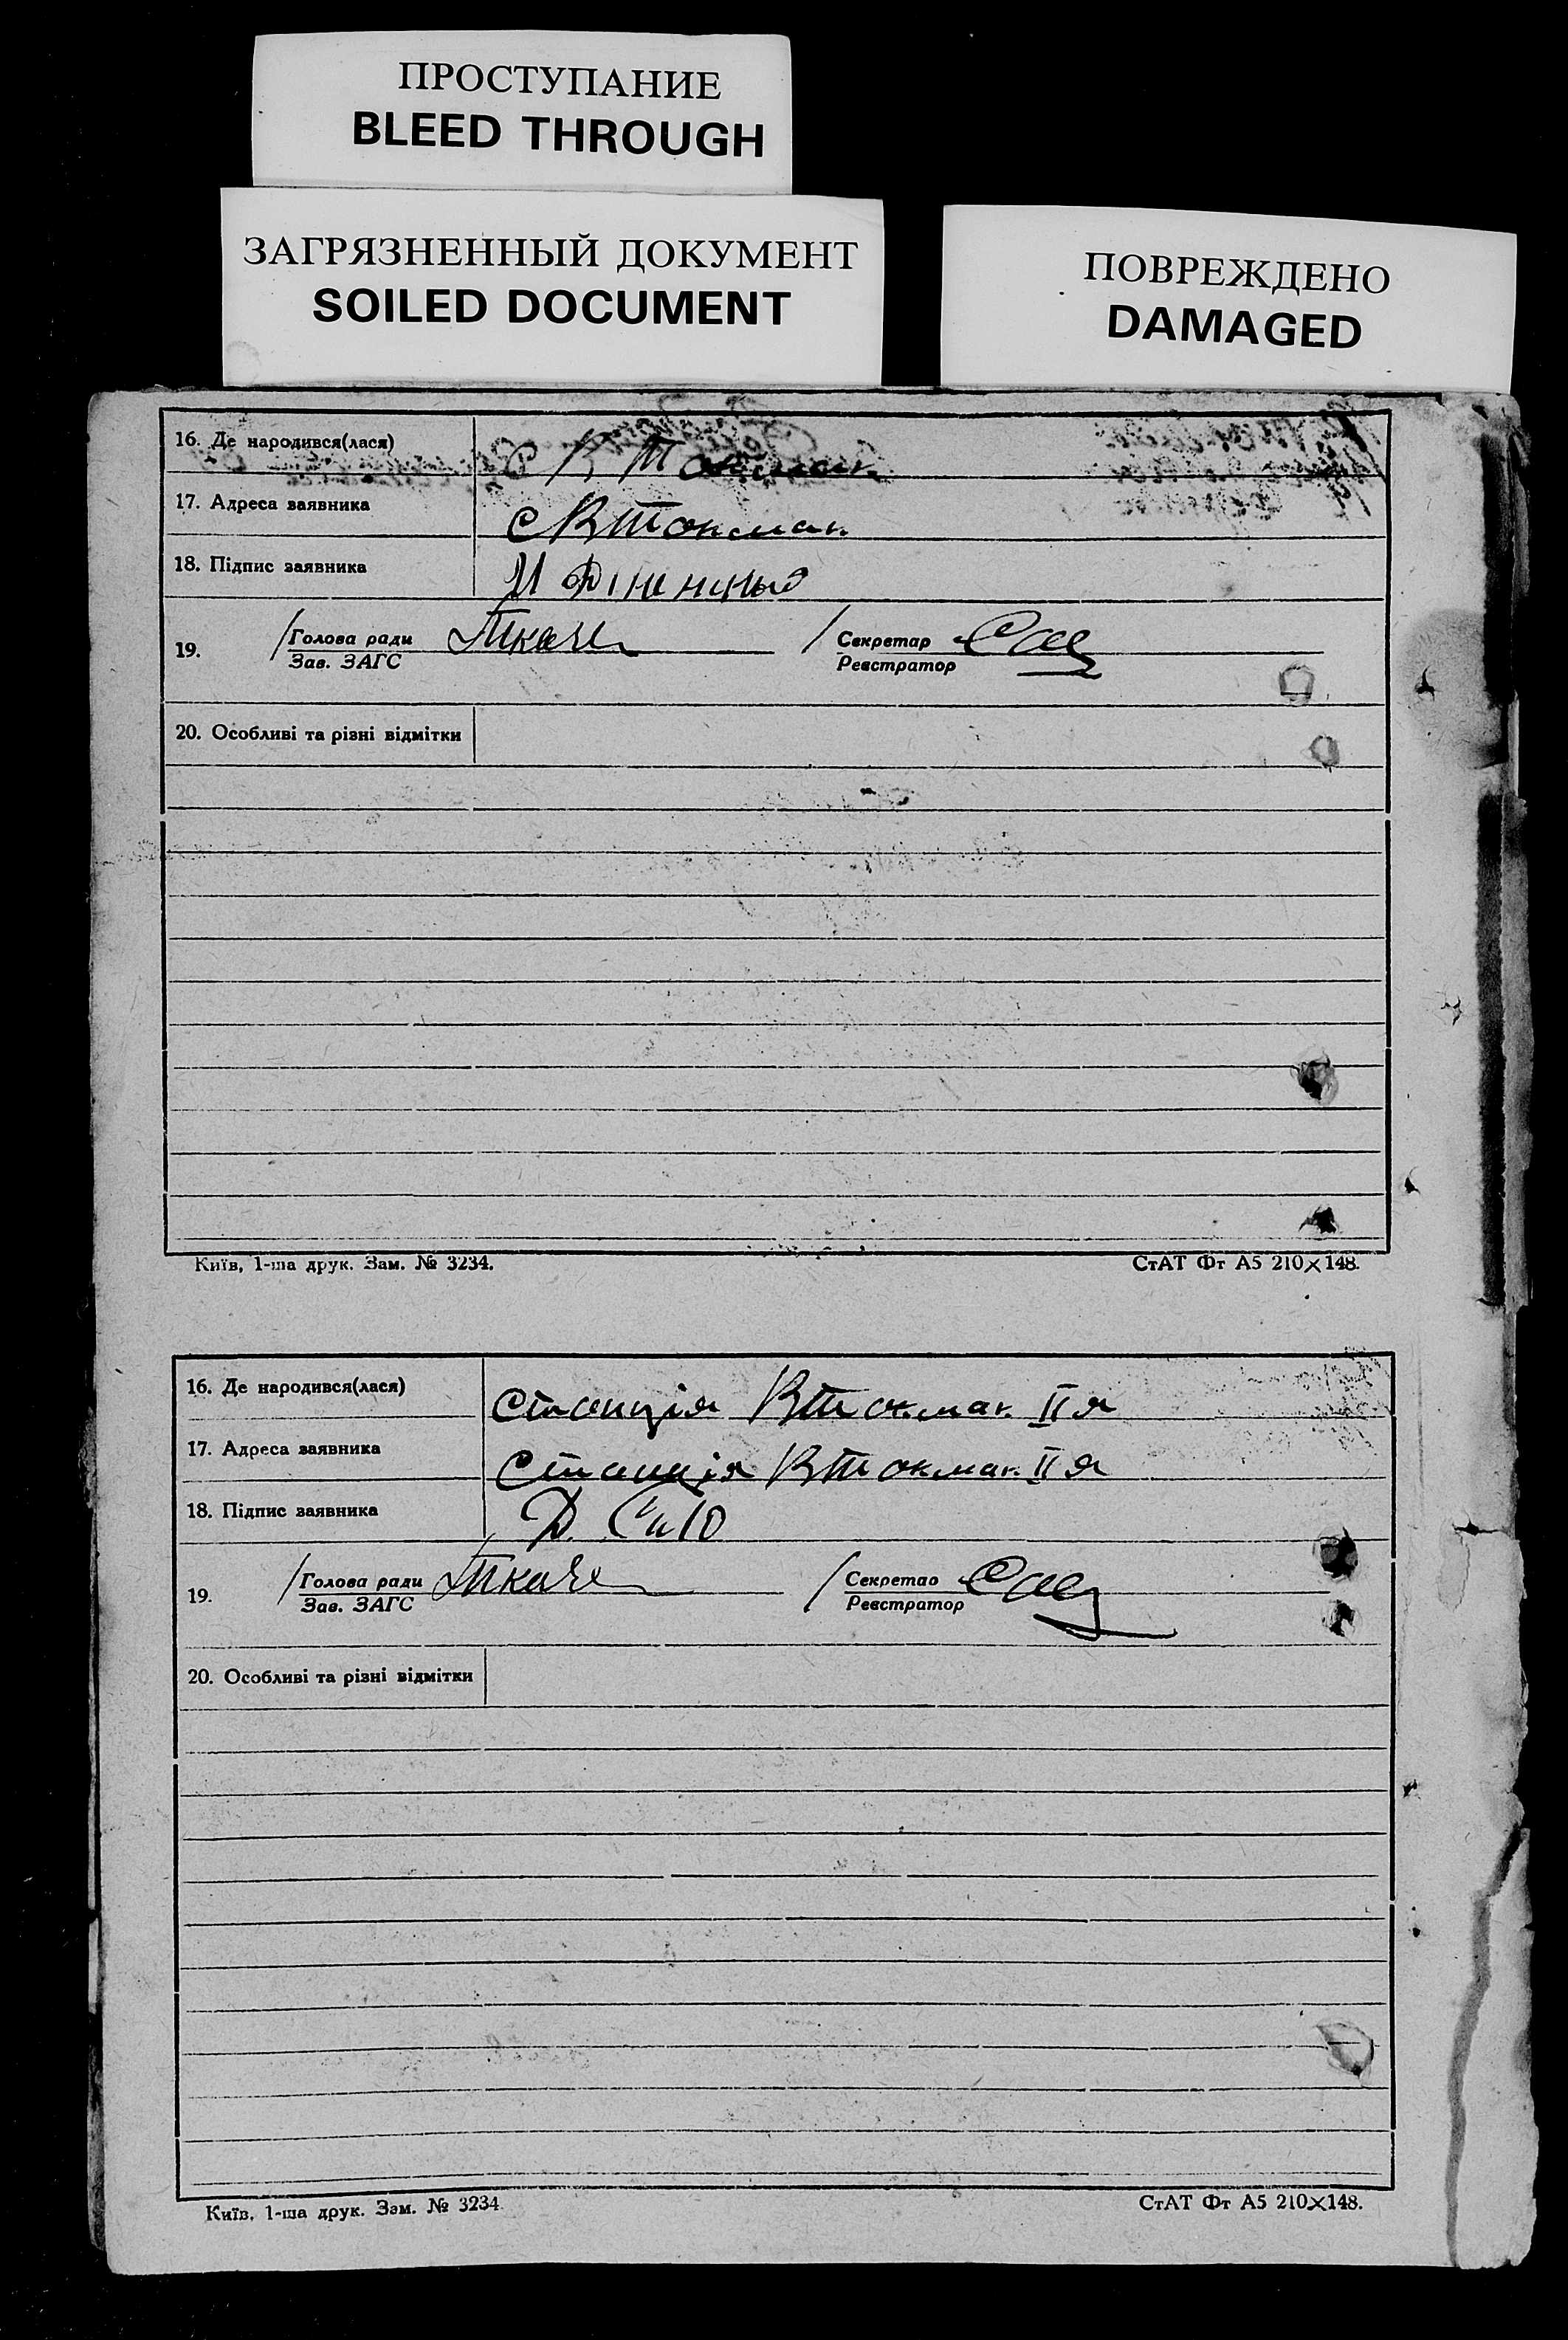 ПРОСТУПАНИЕ
BLEED THROUGH
ЗАГРЯЗНЕННЫЙ ДОКУМЕНТ
SOILED DOCUMENT
ПОВРЕЖДЕНО
DAMAGED
16. Де народився(лася) с В Токмак
17. Адреса заявника с ВТокмак
18. Підпис заявника
19. Голова ради Ткач Секретар
Зав. ЗАГС Реєстратор
20. Особливі та різні відмітки
Київ, 1-ша друк. Зам. № 3234. СтАТ Фт А5 210×148.
16. Де народився(лася) Станція ВТокмак II я
17. Адреса заявника Станція ВТокмак II я
18. Підпис заявника Д.
19. Голова ради Ткач Секретар
Зав. ЗАГС Реєстратор
20. Особливі та різні відмітки
Київ, 1-ша друк. Зам. № 3234 СтАТ Фт А5 210×148.